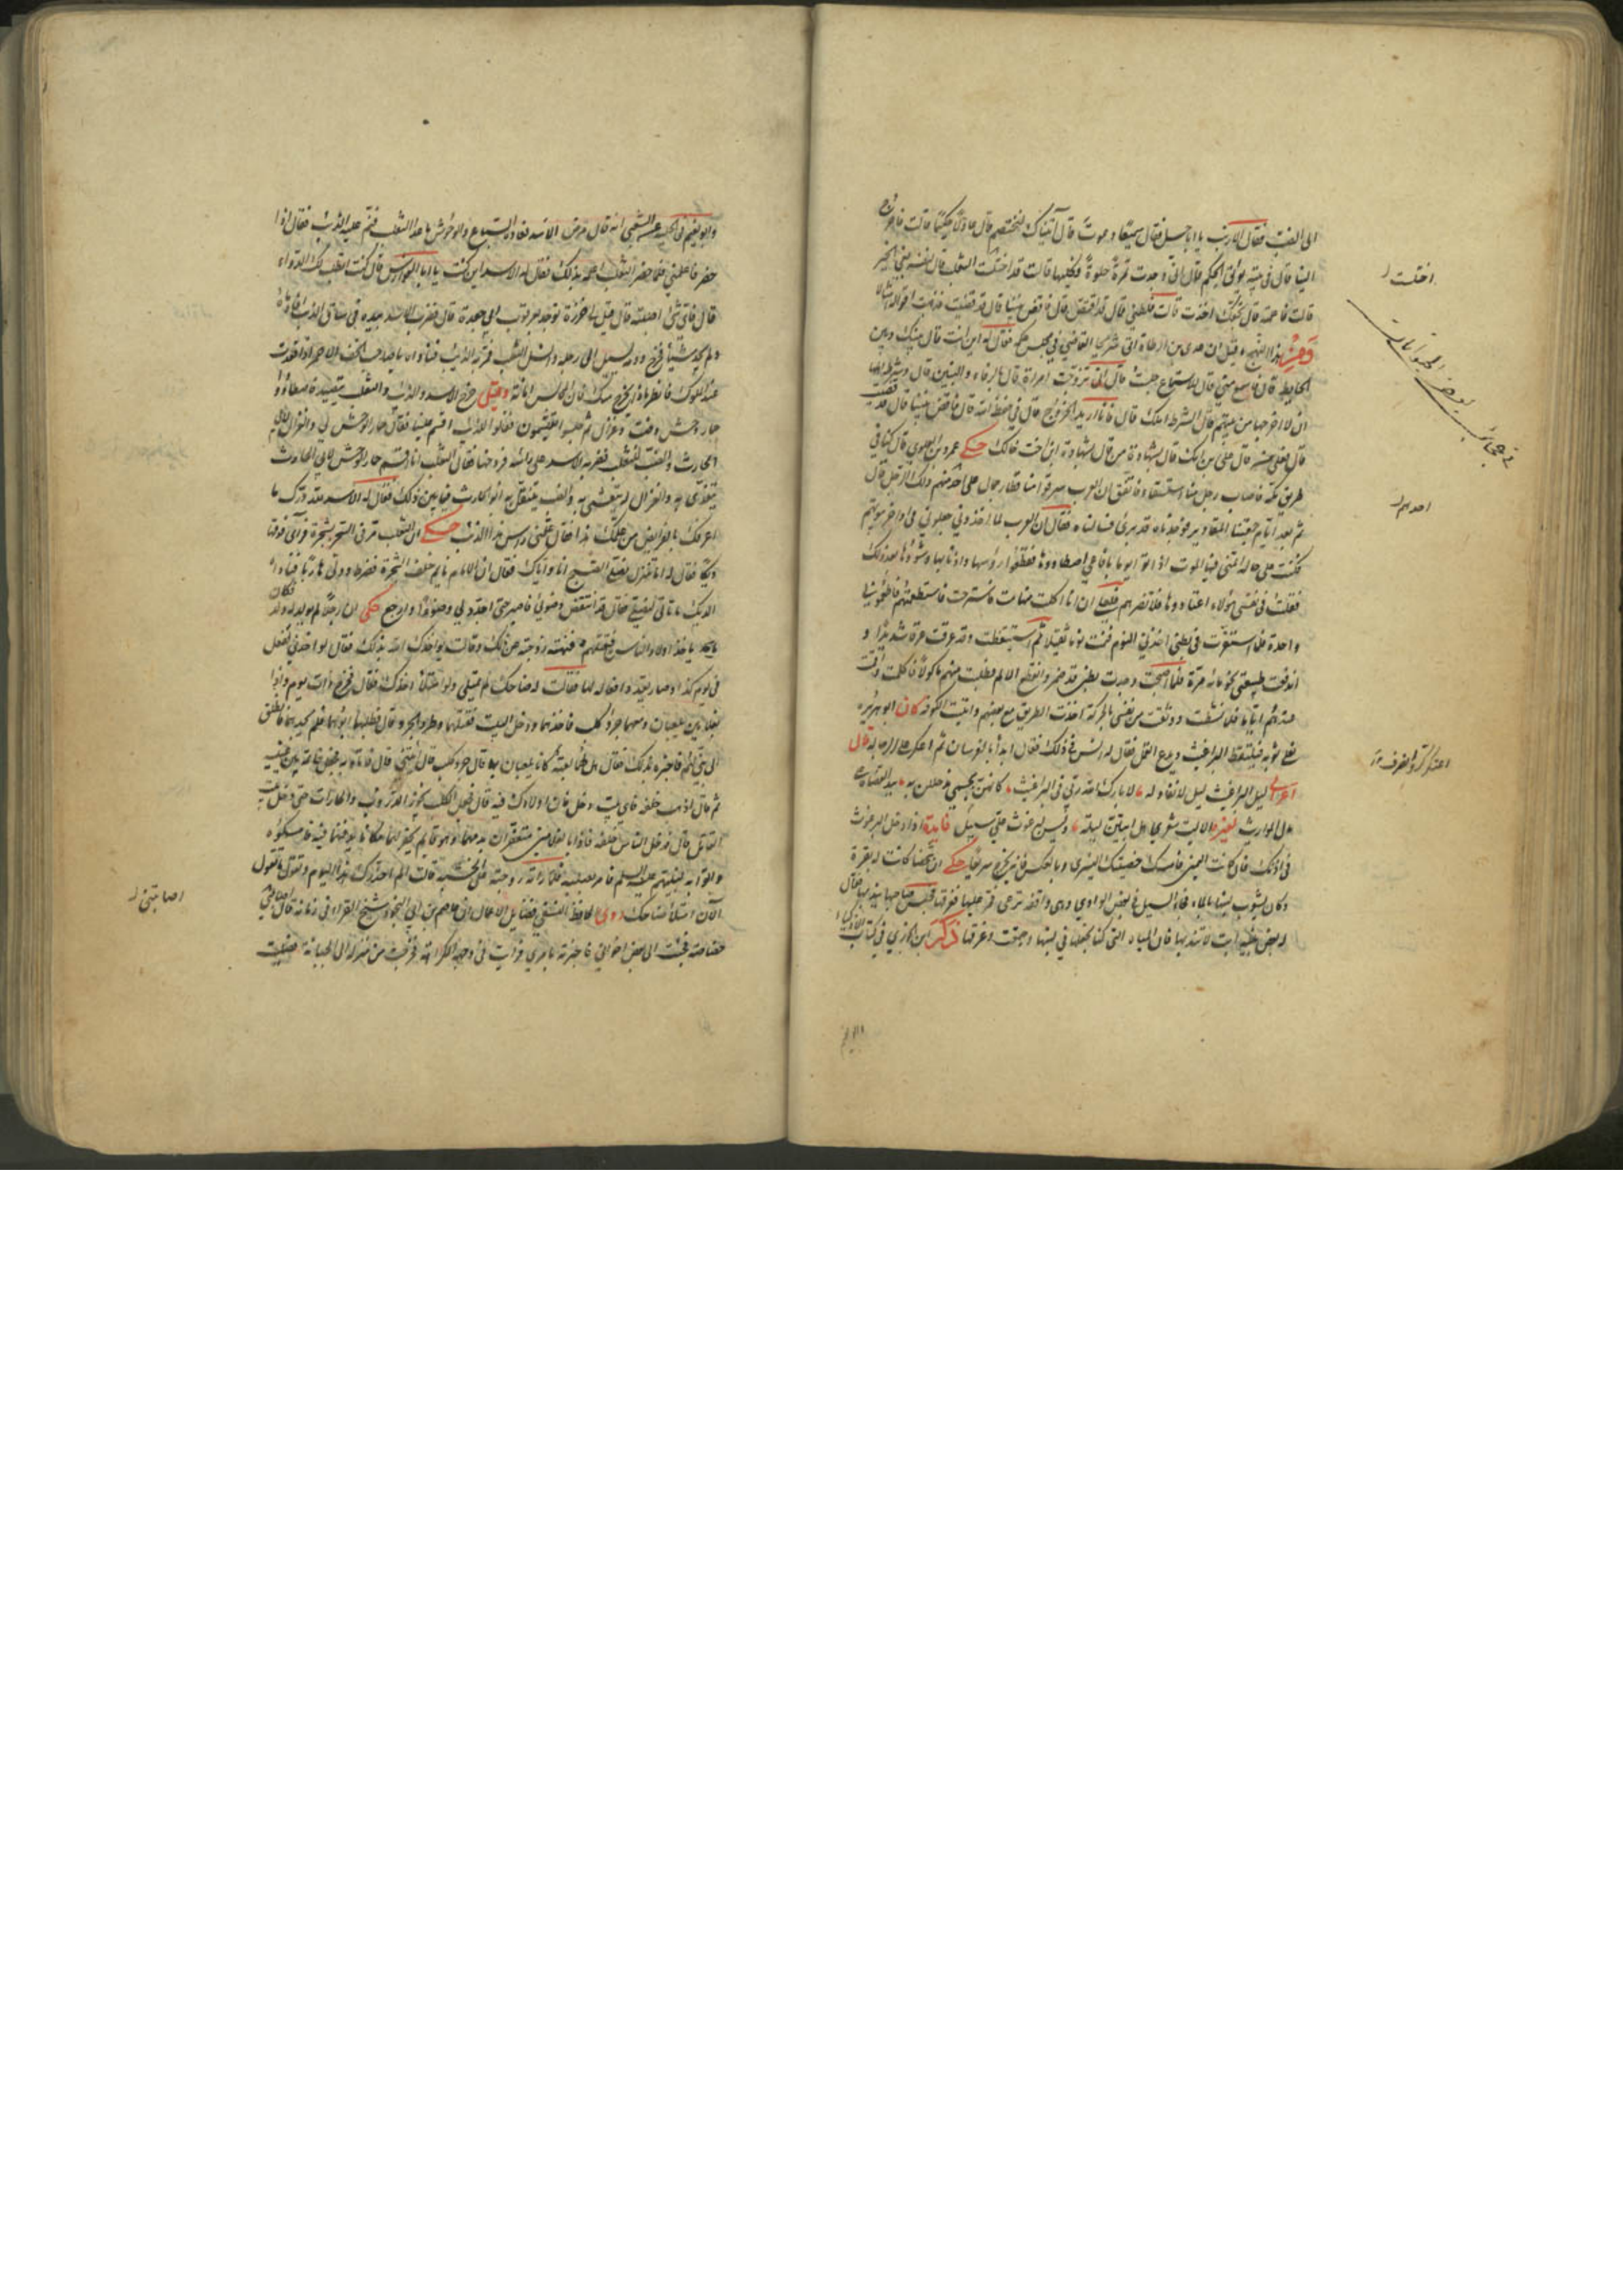 الى الضب فقال الارنب يا ابا حسل فقال سميعا دعوت قال اتيناك لنختصم قال عادلا حكيما قالت فاخرج
الينا قال فى بيته يؤتى الحكم قال انى وجدت تمرة حلوة فكليها قالت قد اختلست الثعلب قال لنفسه بغى الخير
قالت فلطمته قال بحقك اخذت قالت فلطمنى قال قد اقتص قال فاقض بيننا قال قد قضيت فذهبت اقواله امثالا
ومن هذا النهج ما قيل ان عدى بن ارطاة اتى شريحا القاضى فى مجلس حكمه فقال له اين انت قال بينك وبين
الحايط قال فاسمع منى قال للاستماع جلست قال انى تزوجت امراة قال بالرفاء والبنين قال وشرط اهلها
ان لا اخرجها من بينهم قال الشرط املك قال فانا اريد الخروج قال فى حفظ الله قال فاقض بيننا قال قد فعلت
قال فعلى من قال على ابن امك قال بشهادة من قال بشهادة ابن اخت خالتك حكى عمرو بن العلوى قال كنا فى
طريق مكة فاصاب رجل منا استسقاء فاتفق ان العرب سرقوا منا قطار جمال على احدهم ذلك الرجل قال
ثم بعد ايام جمعتنا المقادير فوجدناه قد برئ فسالناه فقال ان العرب لما اخذونى جعلونى فى اواخر بيوتهم
فكنت على حالة اتمنى فيها الموت اذ اتوا يوما بافاعى اصطادوها فقطعوا رؤسها واذنابها وشووها بعد ذلك
فقلت فى نفسى هؤلاء اعتادوها فلا تضرهم فلعلى ان انا اكلت منها مت فاسترحت فاستطعمتهم فاطعمونى
واحدة فلما استقرت فى بطنى اخذنى النوم فنمت نوما ثقيلا ثم استيقظت وقد عرقت عرقا شديدا و
اندفعت طبيعتى نحو مائة مرة فلما اصبحت وجدت بطنى قد ضمر وانقطع الالم فطلبت منهم ماكولا فاكلت واقمت
عندهم اياما فلما نشطت ووثقت من نفسى بالحركة اخذت الطريق مع بعضهم واتيت الكوفة كان ابو هريرة
يفلى ثوبه فيلتقط البراغيث ويدع القمل فقال له انس فى ذلك فقال ابدأ بالفرسان ثم اعكر على الرجالة قال
اعرابى ليل البراغيث ليل لا نفاد له لا بارك الله ربى فى البراغيث كانهن بجسمى اذ حللن به ايدى القضاة
على المواريث لغيره الا ليت شعرى هل ابيتن ليلة وليس لبرغوث على سبيل فايدة اذا دخل البرغوث
فى اذنك فان كانت اليمنى فامسك خصيتك اليسرى وبالعكس فانه يخرج سريعا حكى ان شخصا كانت له بقرة
وكان يشوب لبنها بالماء فجاء السيل فى بعض الوادى وهى واقفة ترعى فمر عليها فغرقها فجلس صاحبها يندبها فقال
له بعض بنيه يا ابت لا تندبها فان المياه التى كنا نخلطها فى لبنها اجتمعت وغرقتها ذكر ابن الجوزى فى كتاب الاذكياء
وابو نعيم
اختلست
احدهم
اعتكر كر وانصرف
وابو نعيم فى الحلية عن الشعبى انه قال مرض الاسد فعاده السباع والوحوش ما عدا الثعلب فنم عليه الذئب فقال اذا
حضر فاعلمنى فلما حضر الثعلب اعلمه بذلك فقال له الاسد اين كنت يا ابا الفوارس قال كنت اتطلب لك الدواء
قال فاى شئ اصبته قال قيل لى خرزة توجد بعرقوب ابى جعدة قال فضرب الاسد بيده فى ساق الذئب فادماه
ولم يجد شيئا فخرج ودمه يسيل على رجليه وانسل الثعلب فمر به الذئب فناداه يا صاحب الخف الاحمر اذا قعدت
عند الملوك فانظر ماذا يخرج منك فان المجالس امانة وقيل خرج الاسد والذئب والثعلب يتصيدون فاصطادوا
حمار وحش وضبا وغزال ثم جلسوا يقتسمون فقالوا للذئب اقسم علينا فقال حمار الوحش لى والغزال لابى
الحارث والضب للثعلب فضربه الاسد على راسه فرضخها فقال الثعلب انا اقسم حمار الوحش لابى الحارث
يتغدى به والغزال له يتعشى به والضب يتنقل به ابو الحارث فيما بين ذلك فقال له الاسد لله درك ما
اعرفك بالفرايض من علمك هذا فقال علمنى راس هذا الذئب حكى ان الثعلب مر فى السحر بشجرة فراى فوقها
ديكا فقال له اما تنزل نصلى الصبح انا واياك فقال ان الامام نايم خلف الشجرة فنظر وولى هاربا فناداه
الديك ما تاتى لنصلى فقال قد انتقض وضوئى فاصبر حتى اجدد لى وضوءا وارجع حكى ان رجلا لم يولد له ولد فكان
ياخذ اولاد الناس فيقتلهم فنهته زوجته عن ذلك وقالت يؤاخذك الله بذلك فقال لو اخذنى لفعل
فى يوم كذا وصار يعد افعاله لها فقالت له صاعك لم يمتلى ولو امتلا اخذك فقال فخرج ذات يوم واذا
بغلامين يلعبان ومعهما جرو كلب فاخذهما ودخل البيت فقتلهما وطرد الجرو قال فطلبهما ابوهما فلم يجدهما فانطلق
الى نبى لهم فاخبره بذلك فقال هل لهما لعبة كانا يلعبان بها قال جرو كلب قال ائتنى به فاتاه به فجعل خاتمه بين عينيه
ثم قال اذهب خلفه فاى بيت دخل فان اولادك فيه قال فجعل الكلب يجوز الدروب والحارات حتى دخل بيت
القاتل قال فدخل الناس خلفه فاذا بالغلامين متعفران بدمهما وهو قايم يحفر لهما مكانا يدفنهما فيه فامسكوه
واتوا به لنبيهم عليه السلم فامر بصلبه فلما راته زوجته على الخشبة قالت الم احذرك هذا اليوم وتقول ما تقول
الآن امتلأ صاعك روى الحافظ السلفى فى فضايل الاعمال ان عاصم بن ابى النجود شيخ القراء فى زمانه قال اصابتنى
خصاصة فجئت الى بعض اخوانى فاخبرته بامرى فرايت فى وجهه الكراهة فخرجت من منزله الى الجبانة فصليت
اصابتنى